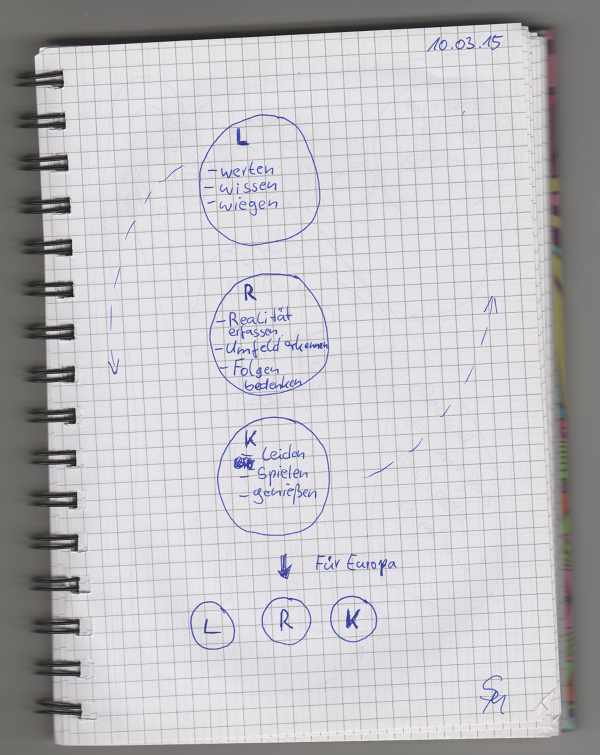 10.03.15
L
- werten
- wissen
- wiegen
R
- Realität
erfassen
- Umfeld erkennen
- Folgen
bedenken
K
- Leiden
- Spielen
- genießen
Für Europa
L R K